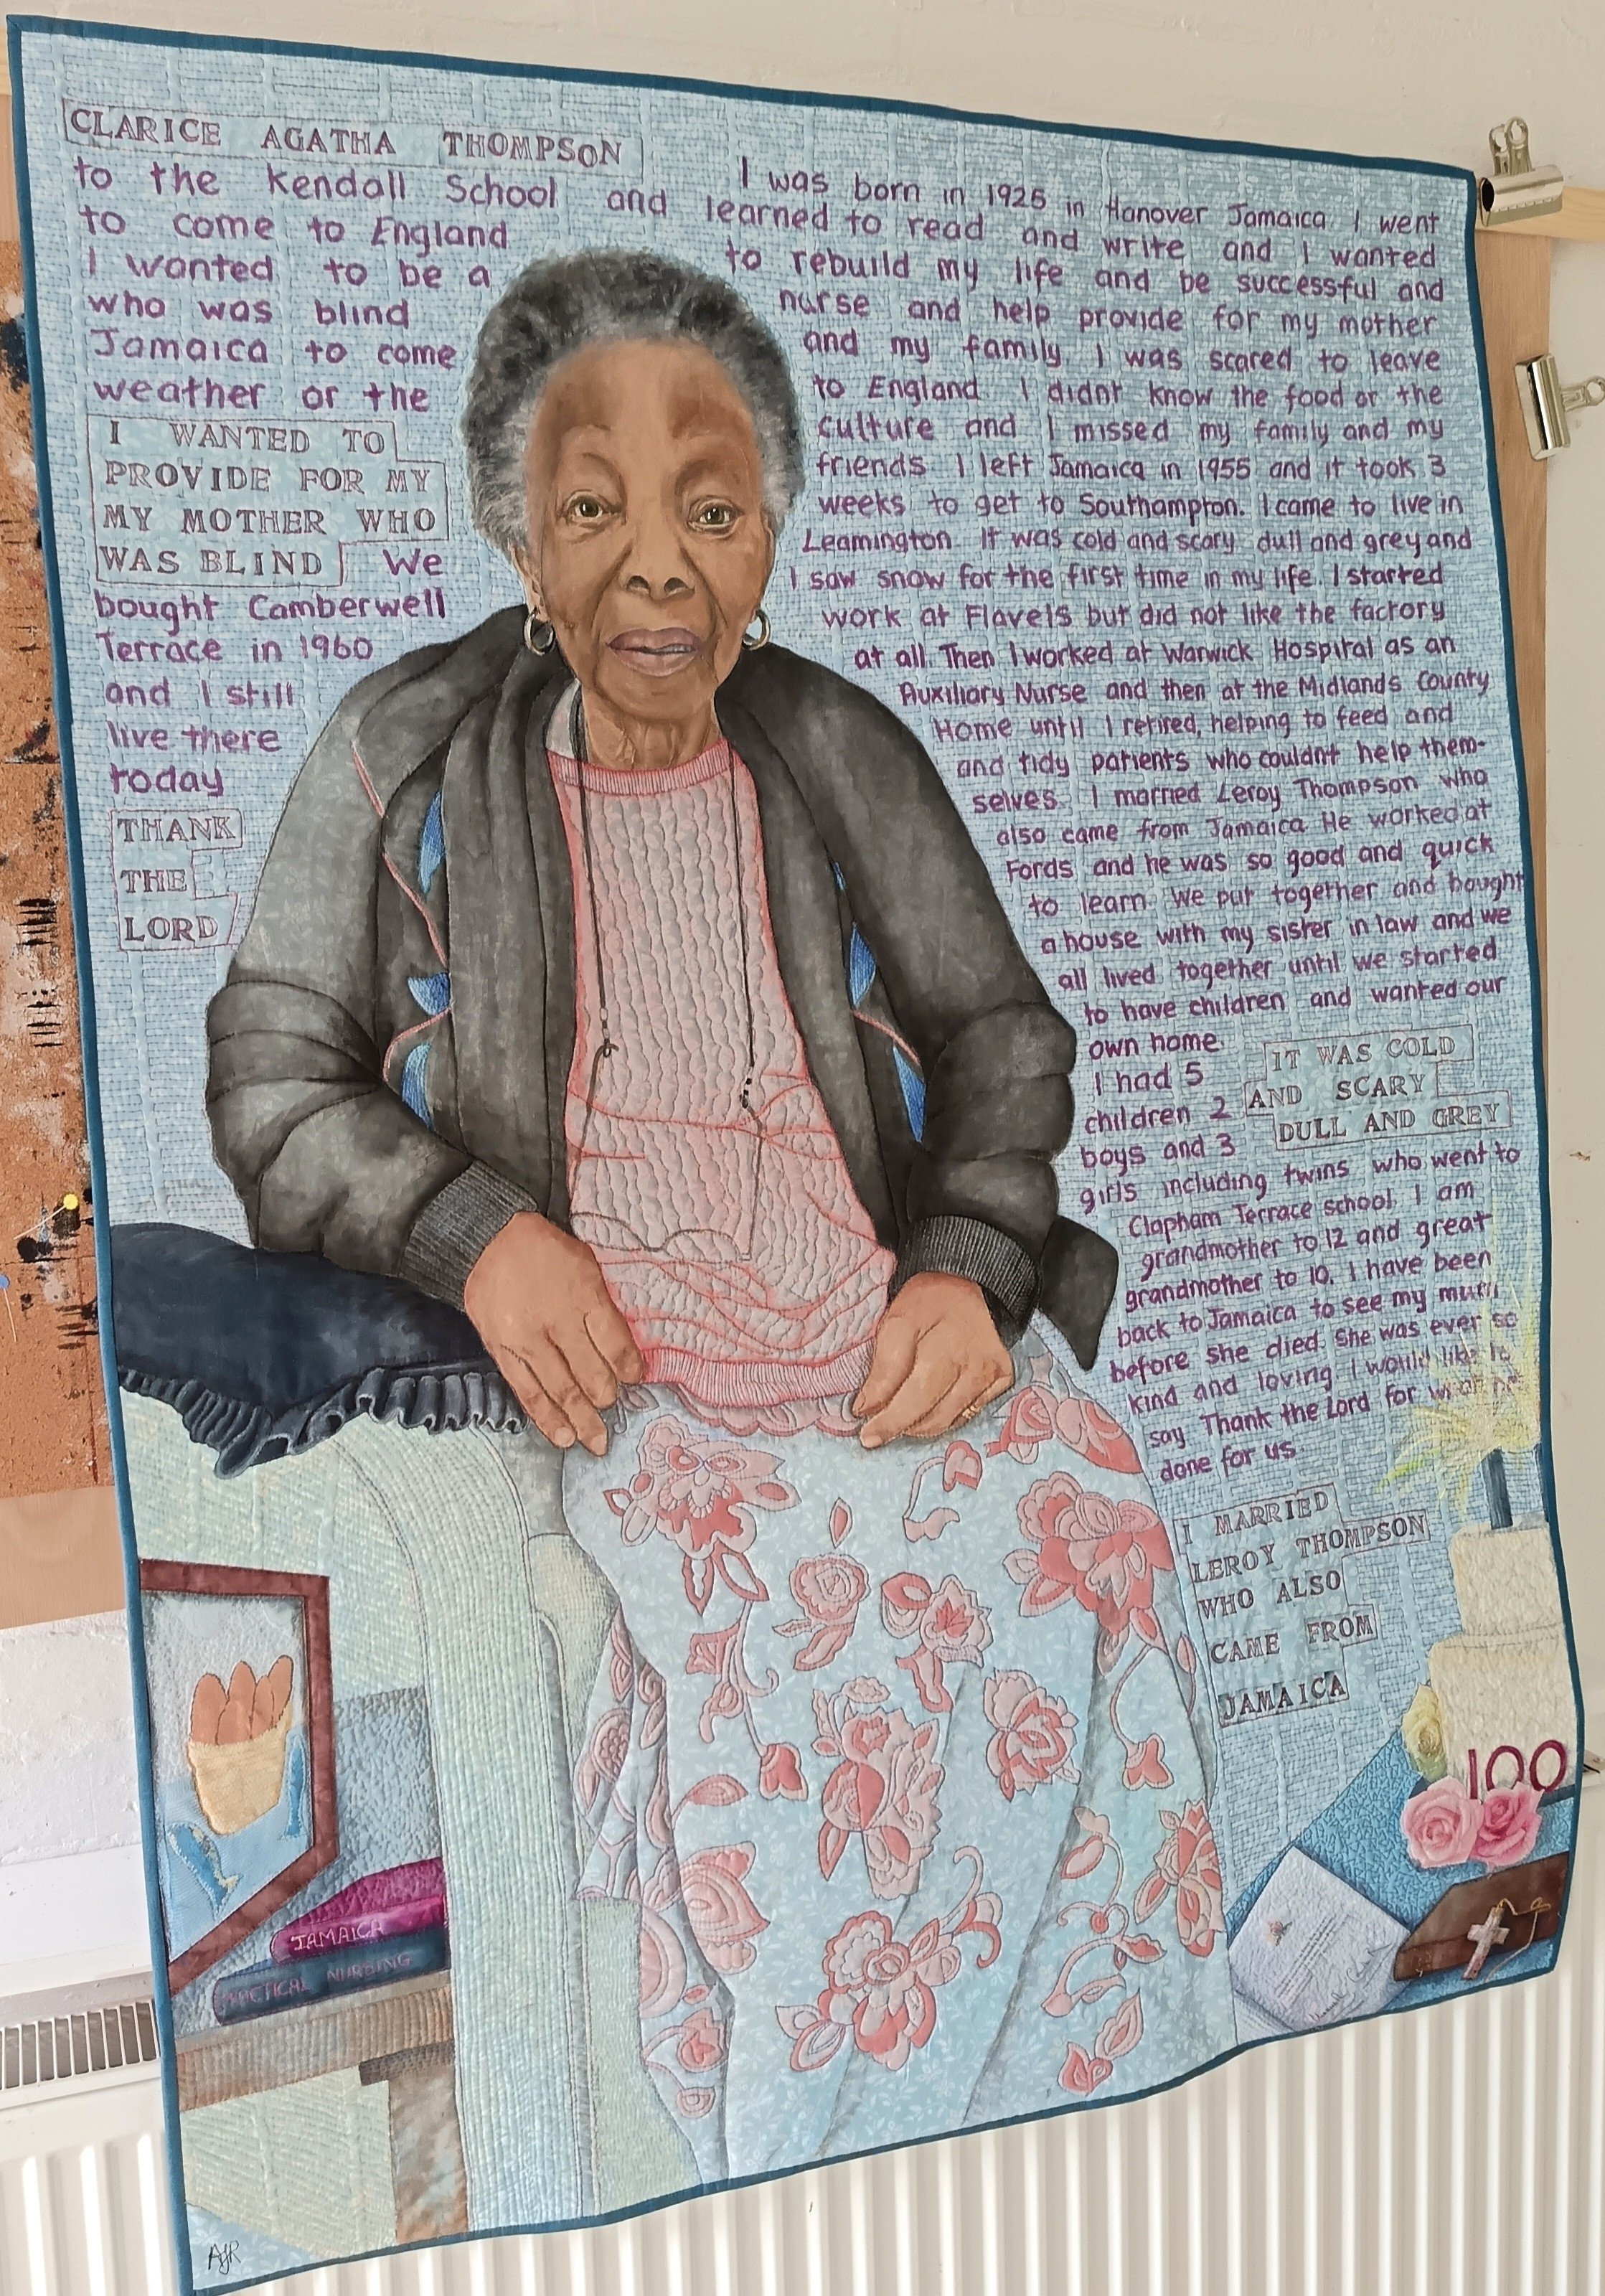 CLARICE AGATHA THOMPSON I was born in 1925 in Hanover Jamaica I went
to the Kendall School and learned to read and write and I wanted
to come to England to rebuild my life and be successful and
I wanted to be a nurse and help provide for my mother
who was blind and my family. I was scared to leave
Jamaica to come to England I didnt know the food or the
weather or the culture and I missed my family and my
friends I left Jamaica in 1955 and it took 3
weeks to get to Southampton. I came to live in
Leamington It was cold and scary dull and grey and
I saw snow for the first time in my life. I started
work at Flavels but did not like the factory
at all. Then I worked at Warwick Hospital as an
Auxiliary Nurse and then at the Midlands County
Home until I retired, helping to feed and
and tidy patients who couldnt help them-
selves. I married Leroy Thompson who
also came from Jamaica He worked at
Fords and he was so good and quick
to learn. We put together and bought
a house with my sister in law and we
all lived together until we started
to have children and wanted our
own home
I WANTED TO
PROVIDE FOR MY
MY MOTHER WHO
WAS BLIND We
bought Camberwell
Terrace in 1960
and I still
live there
today
THANK
THE
LORD
I had 5
children 2
boys and 3
IT WAS COLD
AND SCARY
DULL AND GREY
girls including twins who went to
Clapham Terrace school. I am
grandmother to 12 and great
grandmother to 10. I have been
back to Jamaica to see my
before she died. She was ever so
kind and loving I would like to
say Thank the Lord for
done for us.
I MARRIED
LEROY THOMPSON
WHO ALSO
CAME FROM
JAMAICA
100
JAMAICA
PRACTICAL NURSING
AJR